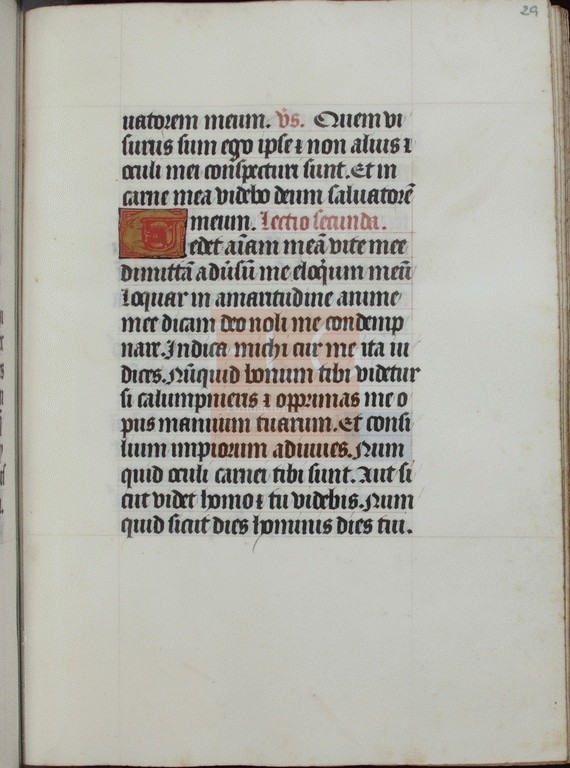 29
uatorem meum. Vs. Quem vi
surus sum ego ipse ⁊ non alius ⁊
oculi mei conspecturi sunt. Et in
carne mea videbo deum saluatorē
meum. Lectio secunda.
Tedet aīam meā vite mee
dimittā aduˢū me eloq̇ium meū
Loquar in amaritudine anime
mee dicam deo noli me condemp
nare. Indica michi cur me ita iu
dices. Nūquid bonum tibi videtur
si calumpnieris ⁊ opprimas me o
pus manuum tuarum. Et consi
lium impiorum adiuues. Num
quid oculi carnei tibi sunt. Aut si
cut videt homo ⁊ tu videbis. Num
quid sicut dies hominis dies tui.